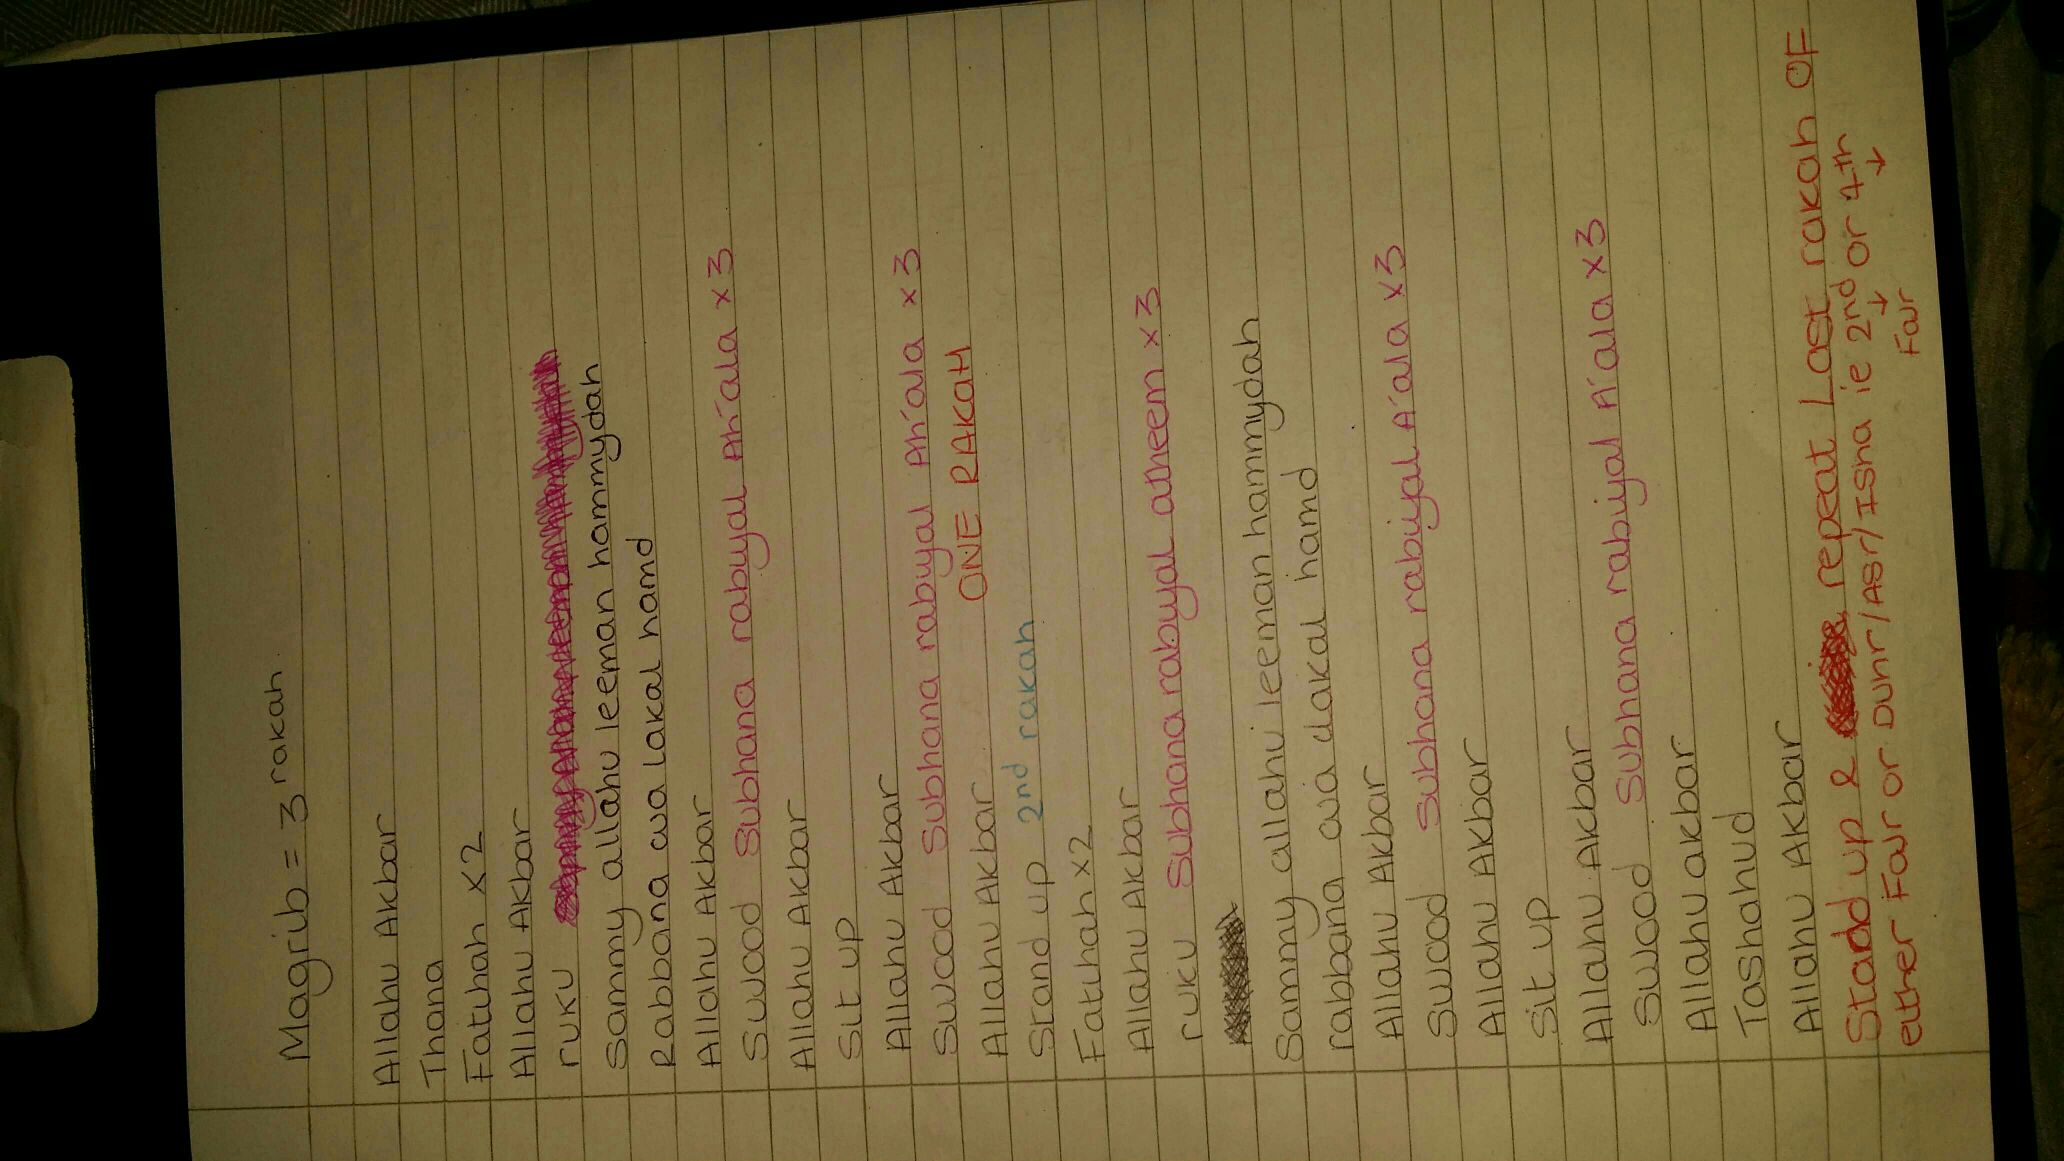 Magrib = 3 rakah
Allahu Akbar
Thana
Fatihah x2
Allahu Akbar
ruku
sammy allahu leeman hammydah
Rabbana wa lakal hamd
Allahu Akbar
Sujood Subhana rabiyal Ah'ala x3
Allahu Akbar
Sit up
Allahu Akbar
Sujood Subhana rabiyal Ah'ala x3
Allahu Akbar ONE RAKAH
Stand up 2nd rakah
Fatihah x2
Allahu Akbar
ruku Subhana rabiyal atheem x3
Sammy allahu leeman hammydah
rabbana wa lakal hamd
Allahu Akbar
Sujood Subhana rabiyal A'ala x3
Allahu Akbar
Sit up
Allahu Akbar
Sujood Subhana rabiyal A'ala x3
Allahu akbar
Tashahud
Allahu Akbar
Stand up & repeat Last rakah OF
either Fajr or Duhr/Asr/Isha ie 2nd or 4th
↓ ↓
Fajr